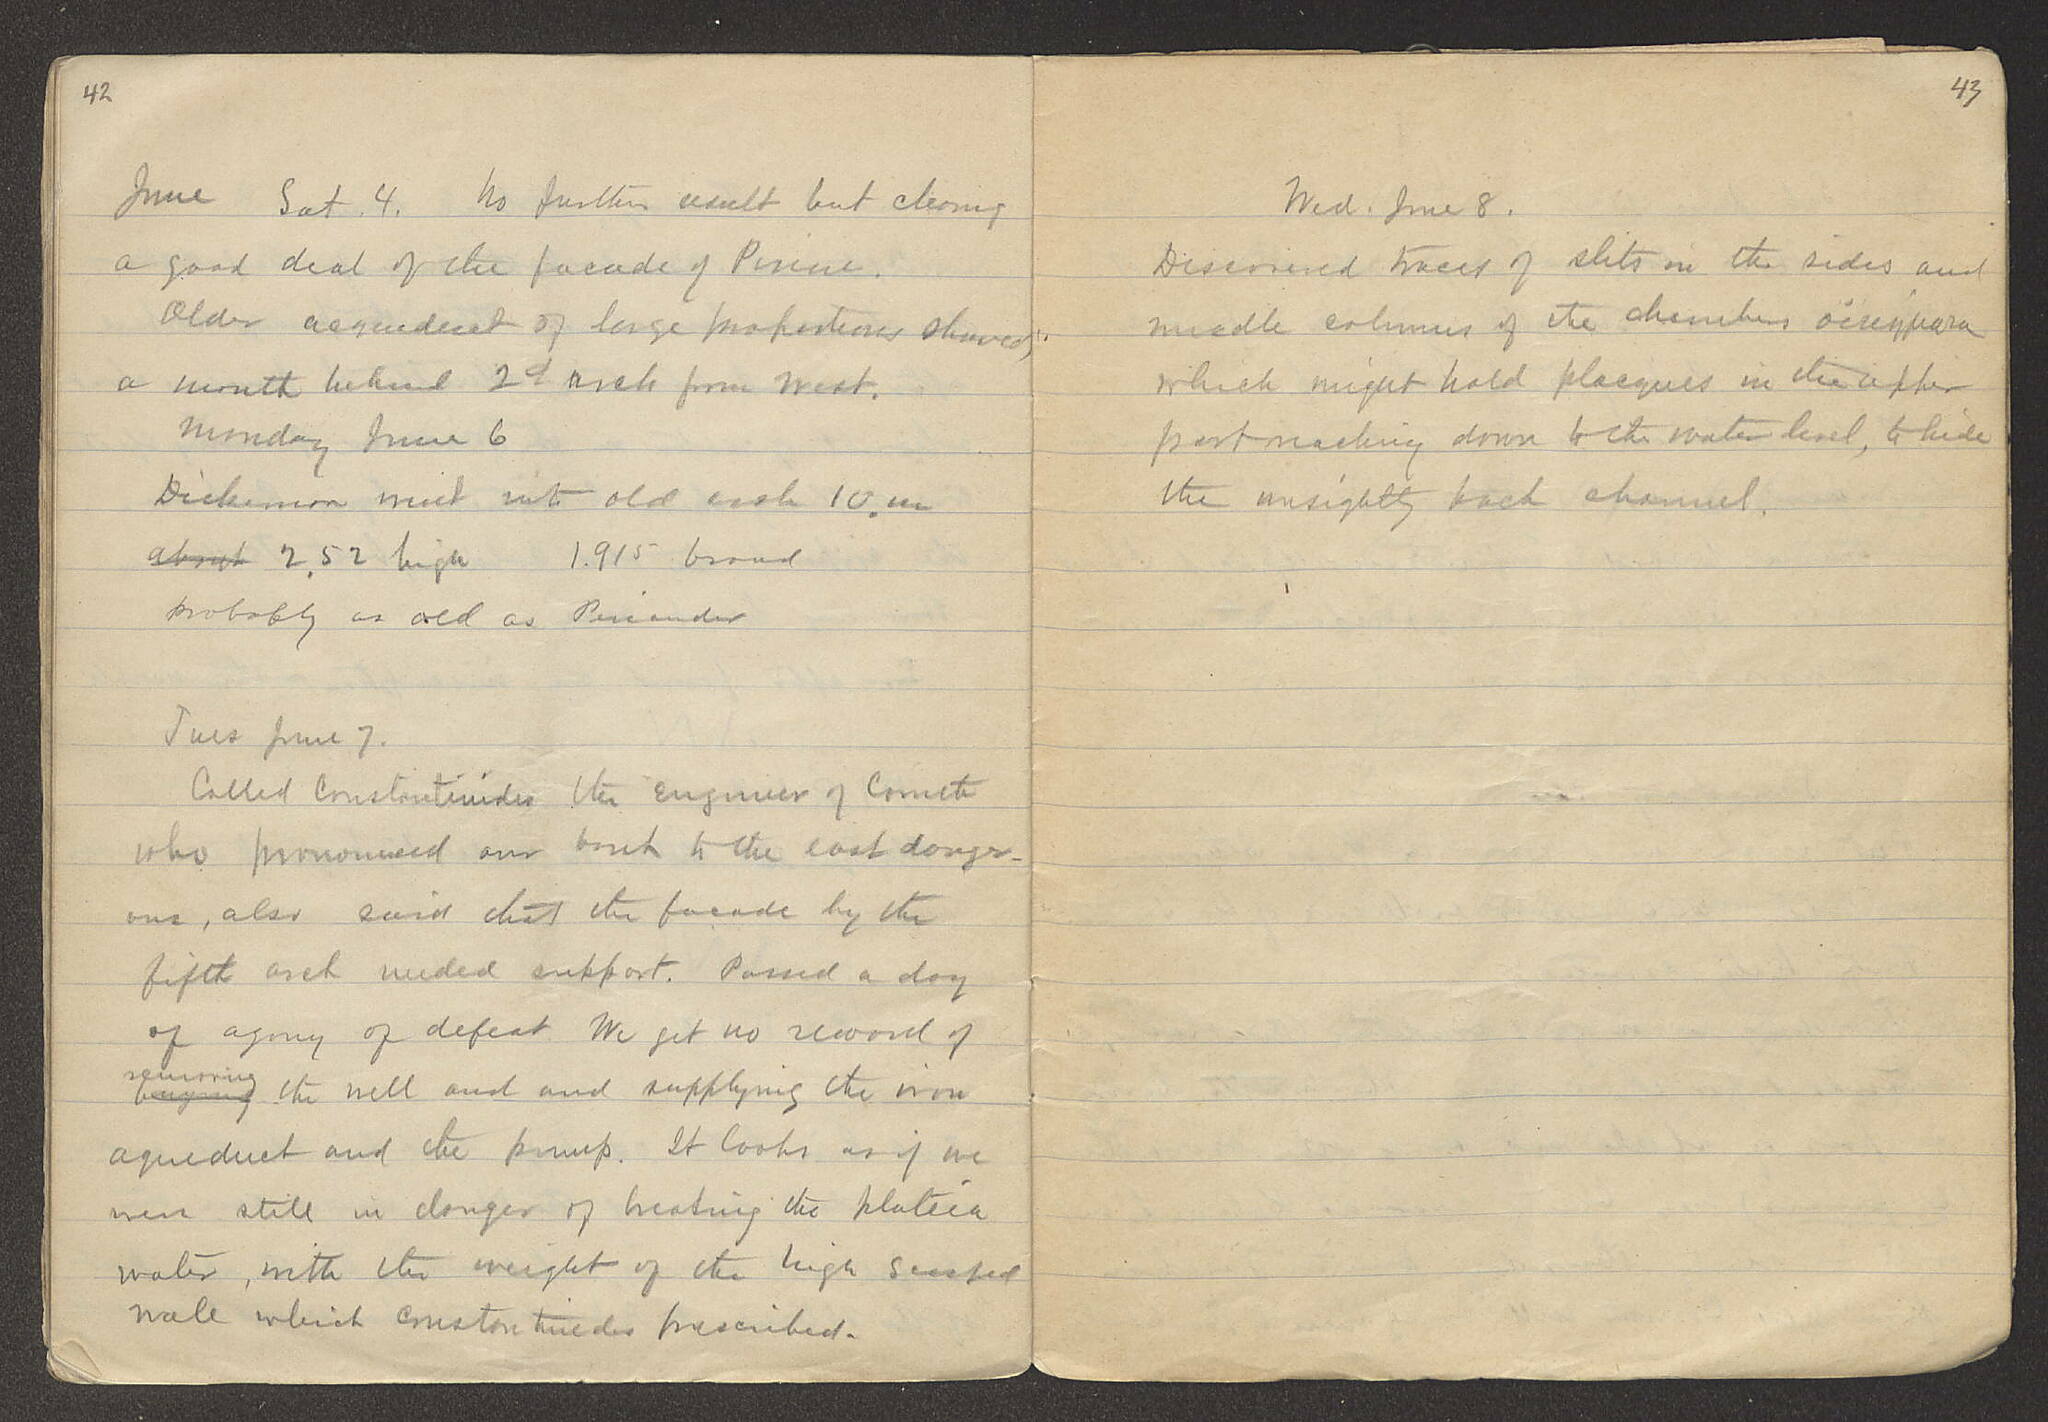 42
June Sat. 4. No further result but clearing
a good deal of the facade of Pirene.
Older acqueduct of large proportions showed
a mouth behind 2d arch from West.
Monday June 6
Dickerman went into old arch 10. m
about 2.52 high 1.915 broad
probably as old as Periander
Tues June 7.
Called Constantinides the Engineer of Corinth
who pronounced our bank to the east danger-
ous, also said that the facade by the
fifth arch needed support. Passed a day
of agony of defeat We get no reward of
removing
the well and and supplying the iron
aqueduct and the pump. It looks as if we
were still in danger of breaking the plateia
water, with the weight of the high
wall which Constantinides prescribed.
43
Wed. June 8.
Discovered traces of slits in the sides and
middle columns of the chambers
which might hold placques in the upper
part reaching down to the water level, to hide
the unsightly back channel.